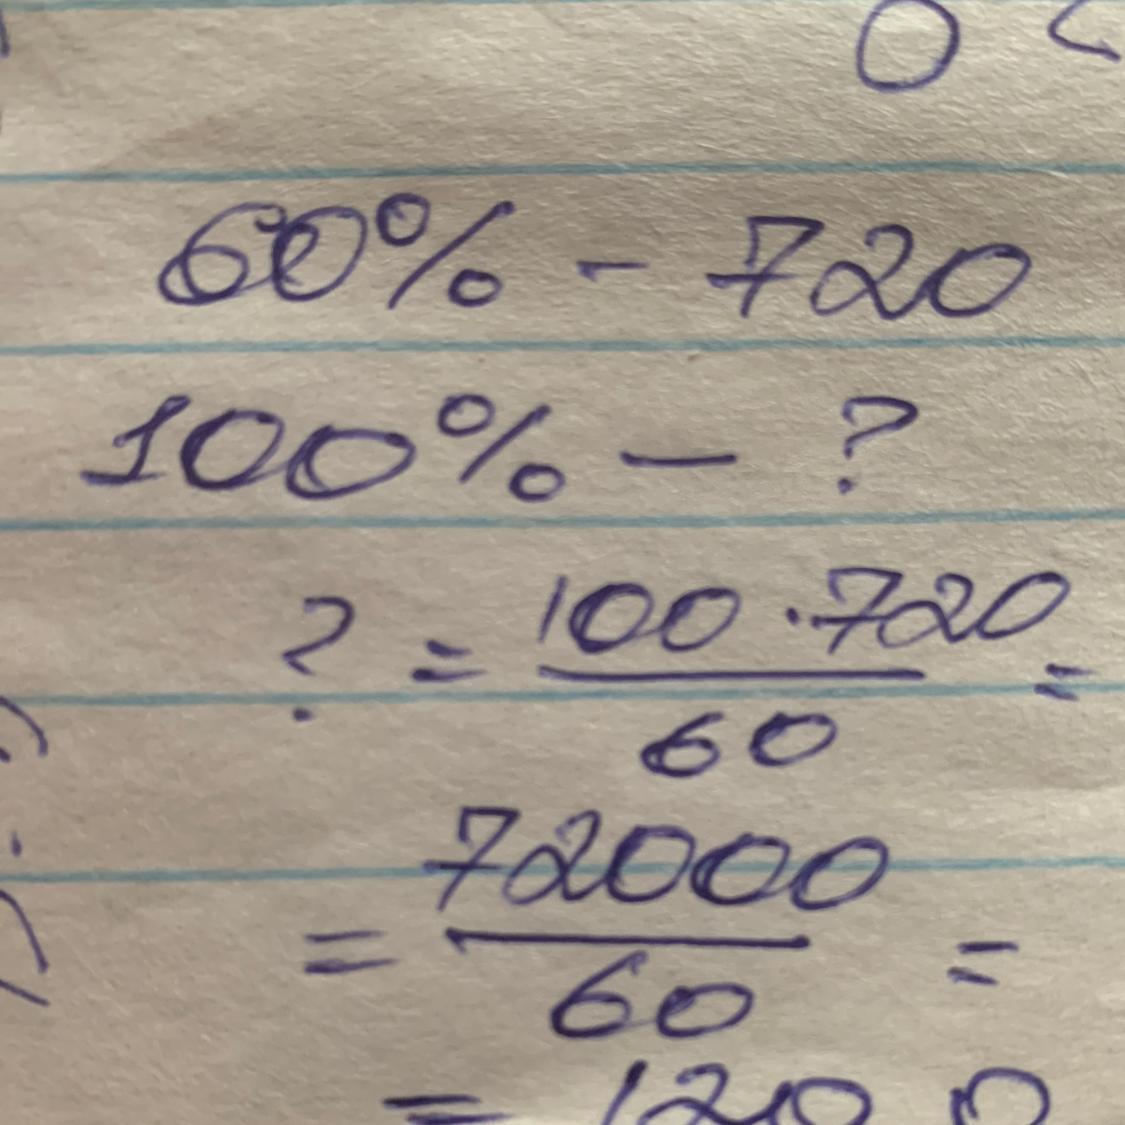 60% - 720
100% - ?
? = 100 · 720 / 60 =
= 72000 / 60 =
= 1200